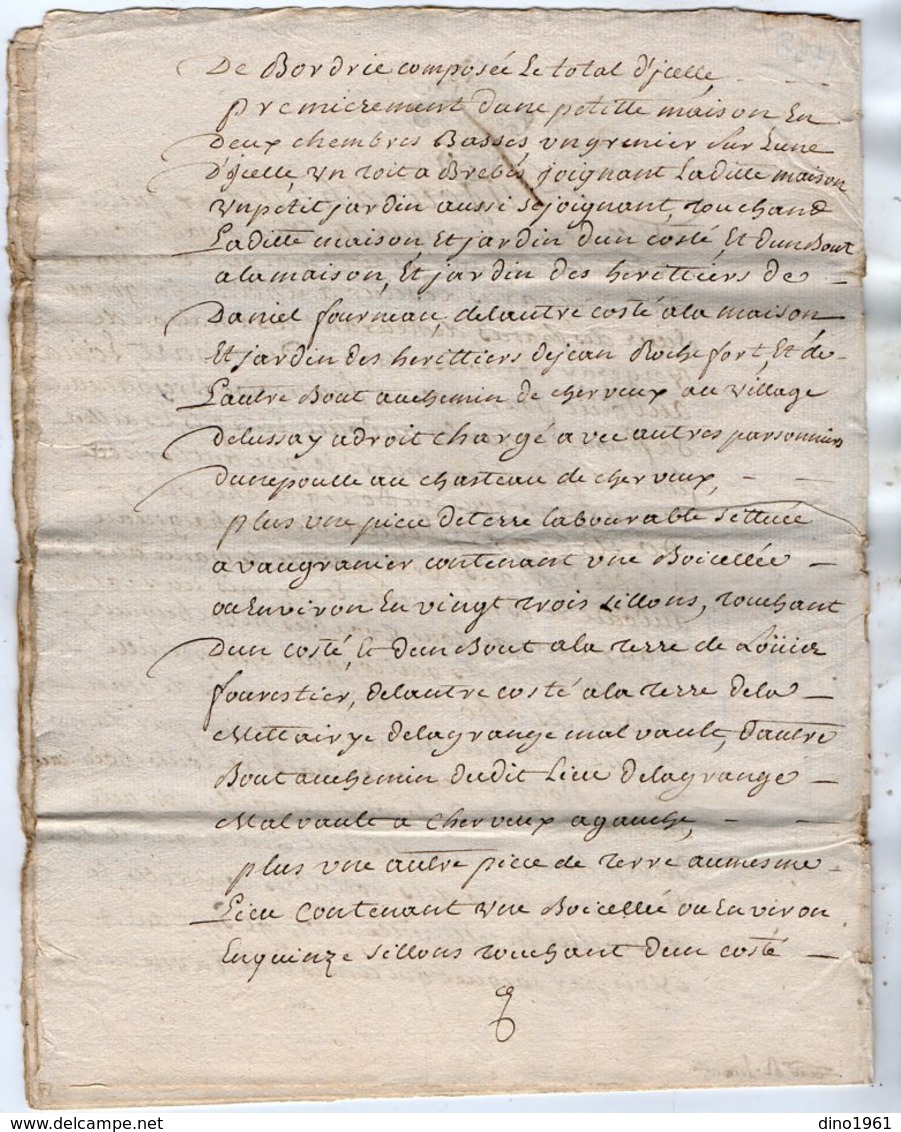 De Bordrie composée Le total d'jcelle
premierement dune petitte maison En
Deux chembres Basses un grenier sur Lune
D'jcelle, un toit a Brebis joignant Laditte maison
un petit jardin aussi sejoignant, touchand
Laditte maison, Et jardin dun costé, Et dun Bout
a la maison, Et jardin des herittiers de
Daniel fourneau, delautre costé a la maison
Et jardin des herittiers dejean Rochefort, Et de
Lautre Bout auchemin de cherveux au village
delussay a droit chargé avec autres parsonniers
dunepoulle au chasteau de cherveux,
plus une piece deterre labourable settuée
a vaugranier contenant une Boicellée
ou Environ En vingt trois sillons, touchant
dun costé, Et dun Bout a la terre de
fourestier, delautre costé a la terre dela
Mettairye delagrange malvault, dautre
Bout auchemin dudit Lieu delagrange
Malvault a cherveux agauche,
plus une autre piece de terre aumesme
Lieu contenant une Boicellée ou Environ
Enquinze sillons touchant dun costé
dino1961